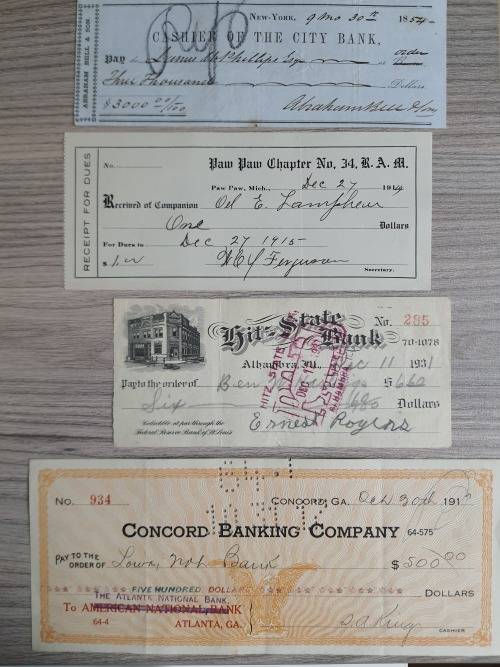 ABRAHAM BELL & SON.
NEW-YORK, 9 Mo 30th 1854-
CASHIER OF THE CITY BANK,
Pay to James McPhillips Esqr or order
Three Thousand Dollars
$3000 21/100 Abraham Bell & Son
RECEIPT FOR DUES
No. Paw Paw Chapter No. 34, R. A. M.
PAW PAW, MICH., Dec 27 1914
Received of Companion E. Lamphear
One Dollars
For Dues to Dec 27 1915-
$1.00 Ferguson
Secretary.
Hitz-State Bank
No. 295
70-1078
Alhambra, Ill., Dec 11 1931
Pay to the order of Ben $6.60
Six Dollars
Collectible at par through the
Federal Reserve Bank of St. Louis
Ernest Rogers
HITZ STATE
PAID
DEC 1931
ALHAMBRA
No. 934
CONCORD, GA. Oct 30th 191
CONCORD BANKING COMPANY 64-575
PAY TO THE
ORDER OF Lowry Nat. Bank $500.00
FIVE HUNDRED DOLLARS DOLLARS
THE ATLANTA NATIONAL BANK
TO AMERICAN NATIONAL BANK
64-4 ATLANTA, GA. King
CASHIER